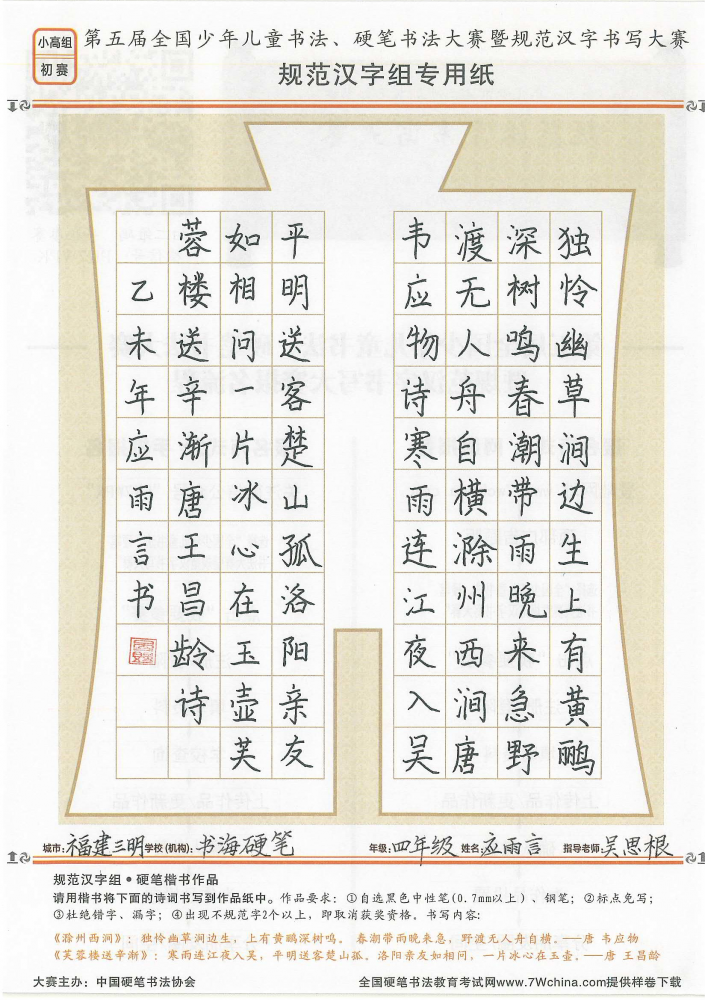 小高组
初赛
第五届全国少年儿童书法、硬笔书法大赛暨规范汉字书写大赛
规范汉字组专用纸
独怜幽草涧边生上有黄鹂
深树鸣春潮带雨晚来急野
渡无人舟自横滁州西涧唐
韦应物诗寒雨连江夜入吴
平明送客楚山孤洛阳亲友
如相问一片冰心在玉壶芙
蓉楼送辛渐唐王昌龄诗
乙未年应雨言书
城市:福建三明 学校(机构):书海硬笔 年级:四年级 姓名:应雨言 指导老师:吴思根
规范汉字组●硬笔楷书作品
请用楷书将下面的诗词书写到作品纸中。作品要求:①自选黑色中性笔(0.7mm以上)、钢笔;②标点免写;
③杜绝错字、漏字;④出现不规范字2个以上,即取消获奖资格。书写内容:
《滁州西涧》:独怜幽草涧边生,上有黄鹂深树鸣。春潮带雨晚来急,野渡无人舟自横。——唐 韦应物
《芙蓉楼送辛渐》:寒雨连江夜入吴,平明送客楚山孤。洛阳亲友如相问,一片冰心在玉壶。——唐 王昌龄
大赛主办:中国硬笔书法协会 全国硬笔书法教育考试网www.7Wchina.com提供样卷下载